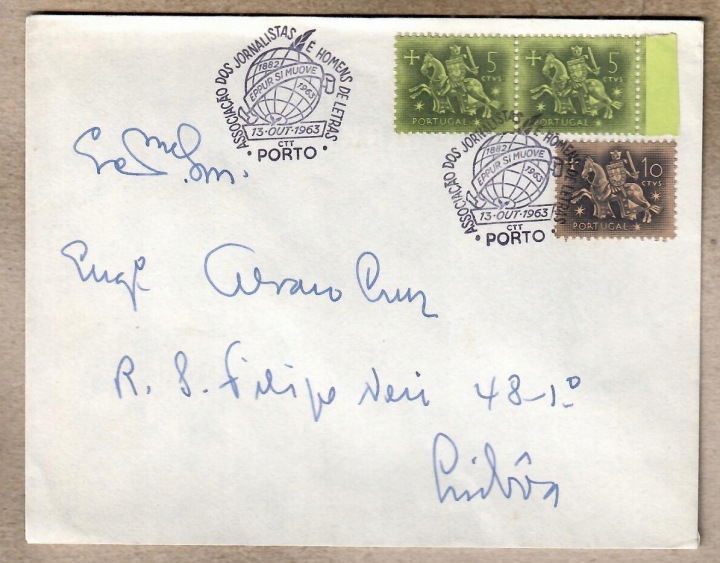 ASSOCIAÇÃO DOS JORNALISTAS E HOMENS DE LETRAS
1882
EPPUR SI MUOVE
1963
13·OUT·1963
CTT
• PORTO •
5
CTVS
PORTUGAL
5
CTVS
PORTUGAL
ASSOCIAÇÃO DOS JORNALISTAS E HOMENS DE LETRAS
1882
EPPUR SI MUOVE
1963
13·OUT·1963
CTT
• PORTO •
10
CTVS
PORTUGAL
Exmo. Sm.
Engº Alvaro Cruz
R. S. Filipe Neri 48-1º
Lisbôa